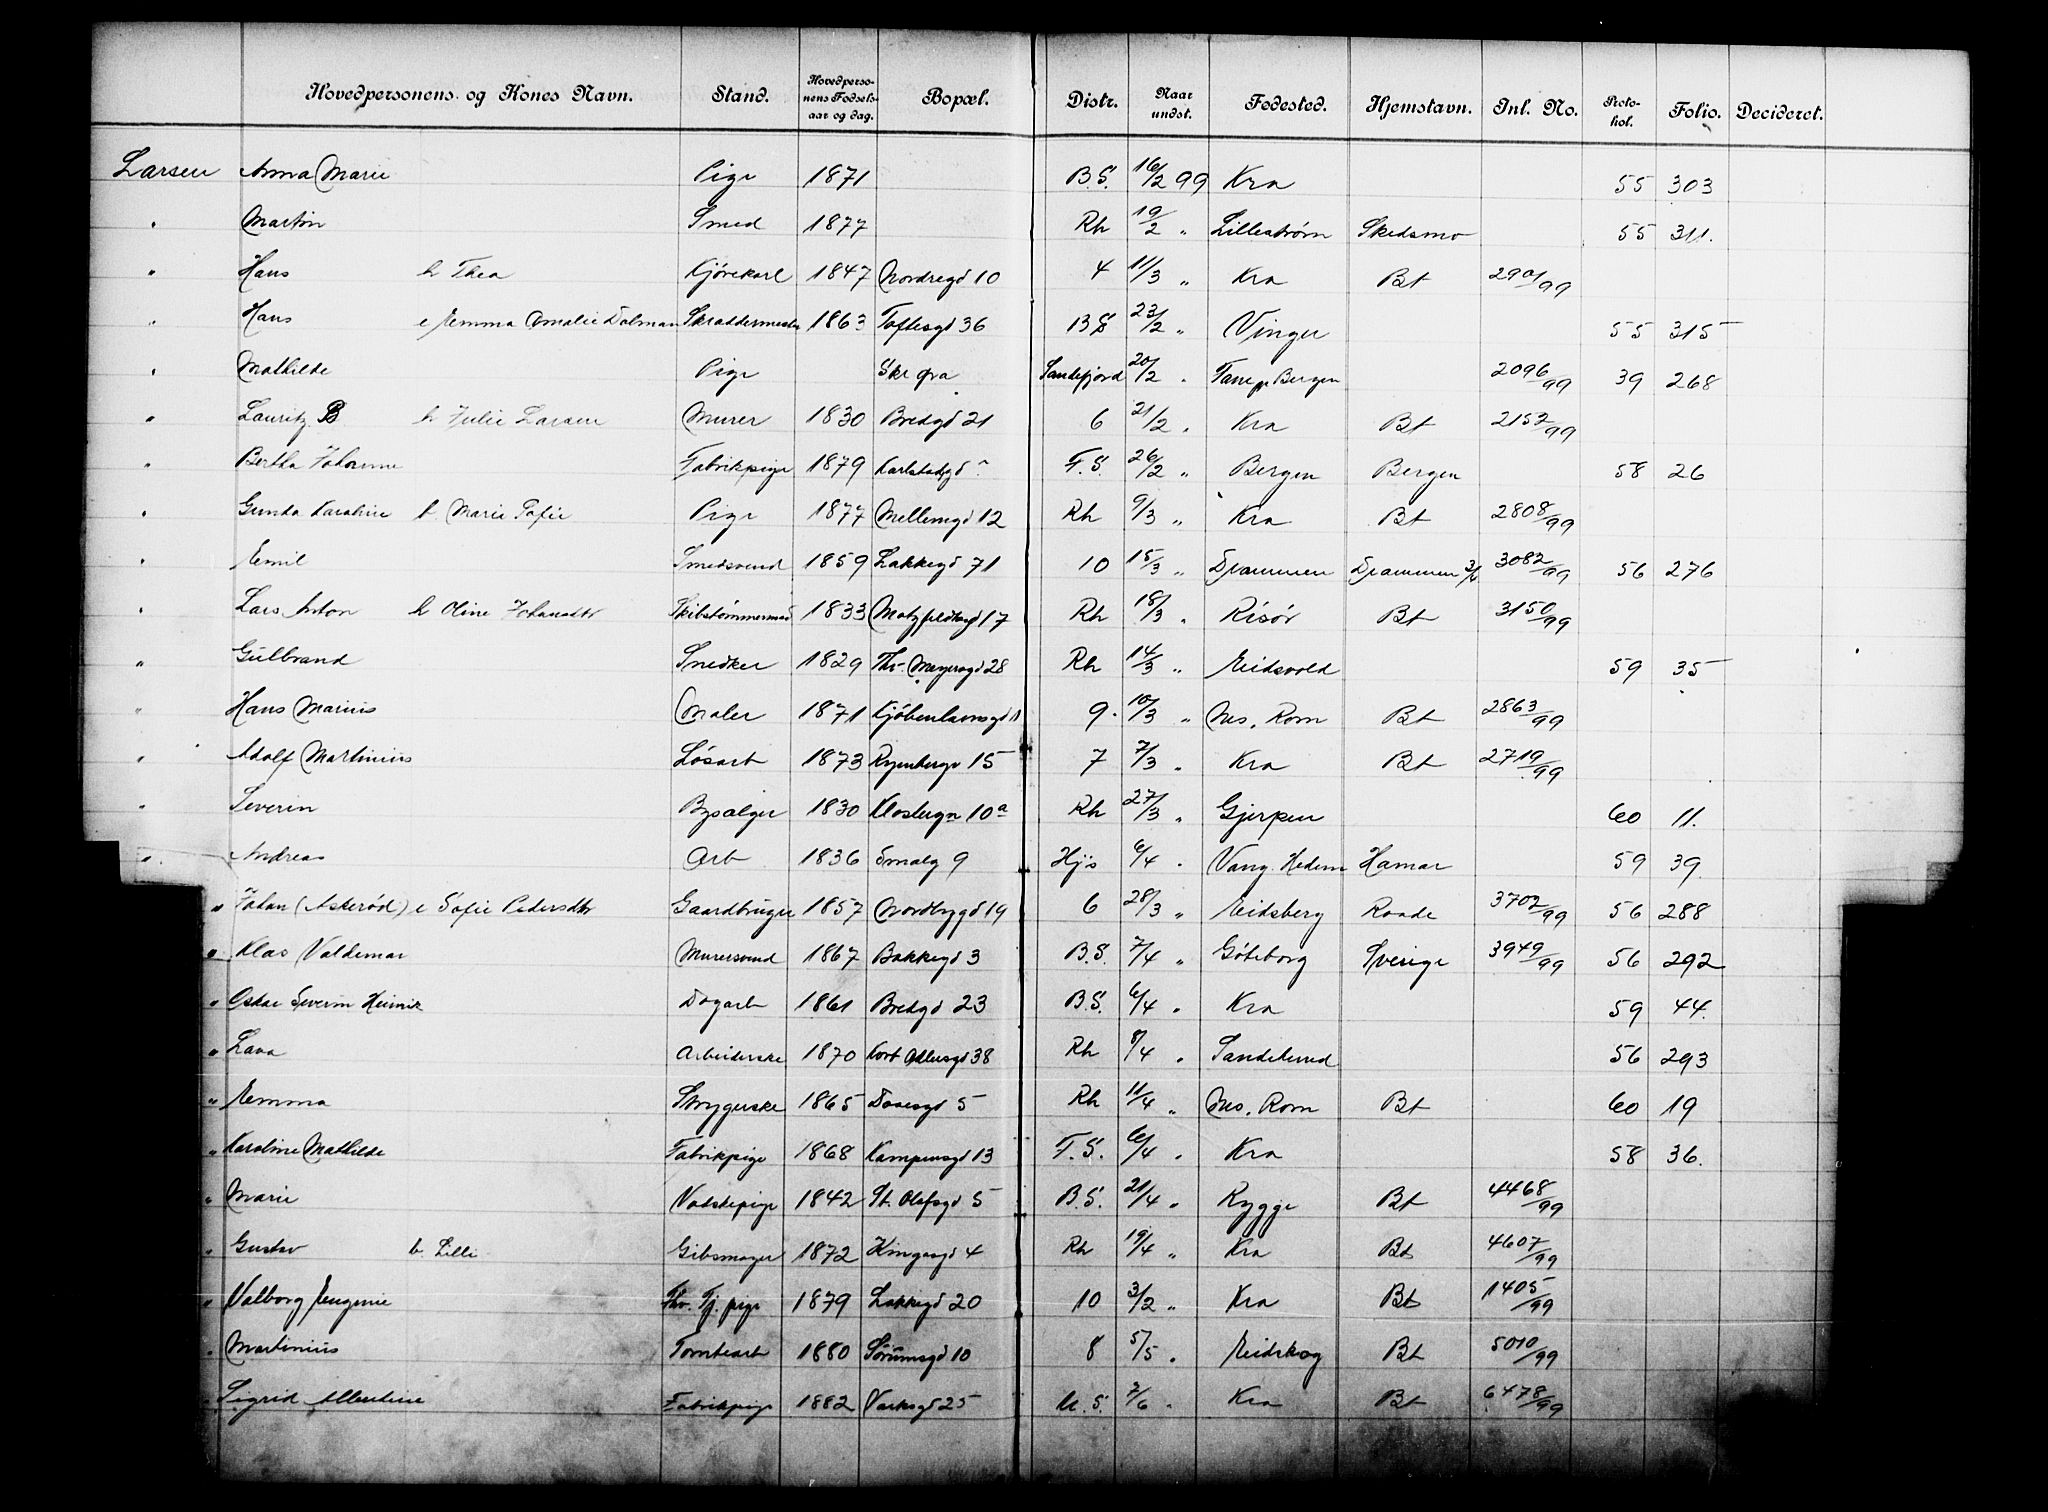 Hovedpersonens og Kones Navn. Stand. Hovedpersonens Fødselsaar og dag. Bopæl. Distr. Naar undst. Fødested. Hjemstavn. Inl. No. Protokol. Folio. Decideret.
Larsen Anna Marie Pige 1871 B.S. 16/2 99 Kra 55 303
" Martin Smed 1877 Rh 19/2 " Lillestrøm Skedsmo 55 311.
" Hans h. Thea Kjørekarl 1847 Nordregd 10 4 11/3 " Kra Bt 2901/99
" Hans e Emma Amalie Dalman Skræddermester 1863 Toftesgd 36 BS 23/2 " Vinger 55 315
" Mathilde Pige Sandefjord 20/2 " Bergen 2096/99 39 268
" Lauritz B h. Julie Larsen Murer 1830 Bredgd 21 6 21/2 " Kra Bt 2152/99
" Bertha Johanne Fabrikpige 1879 Karlstadgd F.S. 26/2 " Bergen Bergen 58 26
" Gunda Karoline h. Marie Sofie Pige 1877 Mellemgd 12 Rh 9/3 " Kra Bt 2808/99
" Emil Smedsvend 1859 Lakkegd 71 10 15/3 " Drammen Drammen 3082/99 56 276
" Lars Anton h Oline Johansdtr Skibstømmermand 1833 Motzfeldtsgd 17 Rh 18/3 " Risør Bt 3150/99
" Gulbrand Snedker 1829 Thv. Meyersgd 28 Rh 14/3 " Eidsvold 59 35
" Hans Marius Maler 1871 Kjøbenhavnsgd 11 9. 10/3 " Nes. Rom Bt 2863/99
" Adolf Martinius Løsarb 1873 Ryenbergv 15 7 7/3 " Kra Bt 2719/99
" Severin Bysælger 1830 Klostergn 10a Rh 27/3 " Gjerpen 60 11.
" Andreas Arb 1836 Smalg 9 Hjs 6/4 " Vang. Hedem Hamar 59 39
" Johan (Askerød) e Sofie Pedersdtr Gaardbruger 1857 Nordbygd 19 6 28/3 " Eidsberg Raade 3702/99 56 288
" Klas Valdemar Murersvend 1867 Bakkegd 3 B.S. 7/4 " Göteborg Sverige 3949/99 56 292
" Oskar Severin Heinrik Dagarb 1861 Bredgd 23 B.S. 6/4 " Kra 59 44.
" Lava Arbeiderske 1870 Kort Adlersgd 38 Rh 8/4 " Sandelund 56 293
" Emma Strygerske 1865 Daasgd 5 Rh 11/4 " Nes. Rom Bt 60 19
" Karoline Mathilde Fabrikpige 1868 Kampensgd 13 F.S. 6/4 " Kra 58 36.
" Marie Vadskepige 1842 St. Olafsgd 5 B.S. 21/4 " Rygge Bt 4468/99
" Gustav h. Lilli Gibsmager 1872 Kingosgd 4 Rh 19/4 " Kra Bt 4607/99
" Valborg Eugenie Thv. Tj. pige 1879 Lakkegd 20 10 3/2 " Kra Bt 1405/99
" Martinius Tomtearb 1880 Sørumsgd 10 8 5/5 " Eidskog Bt 5010/99
" Sigrid Albertine Fabrikpige 1882 Verksgd 25 U.S. 7/6 " Kra Bt 6478/99